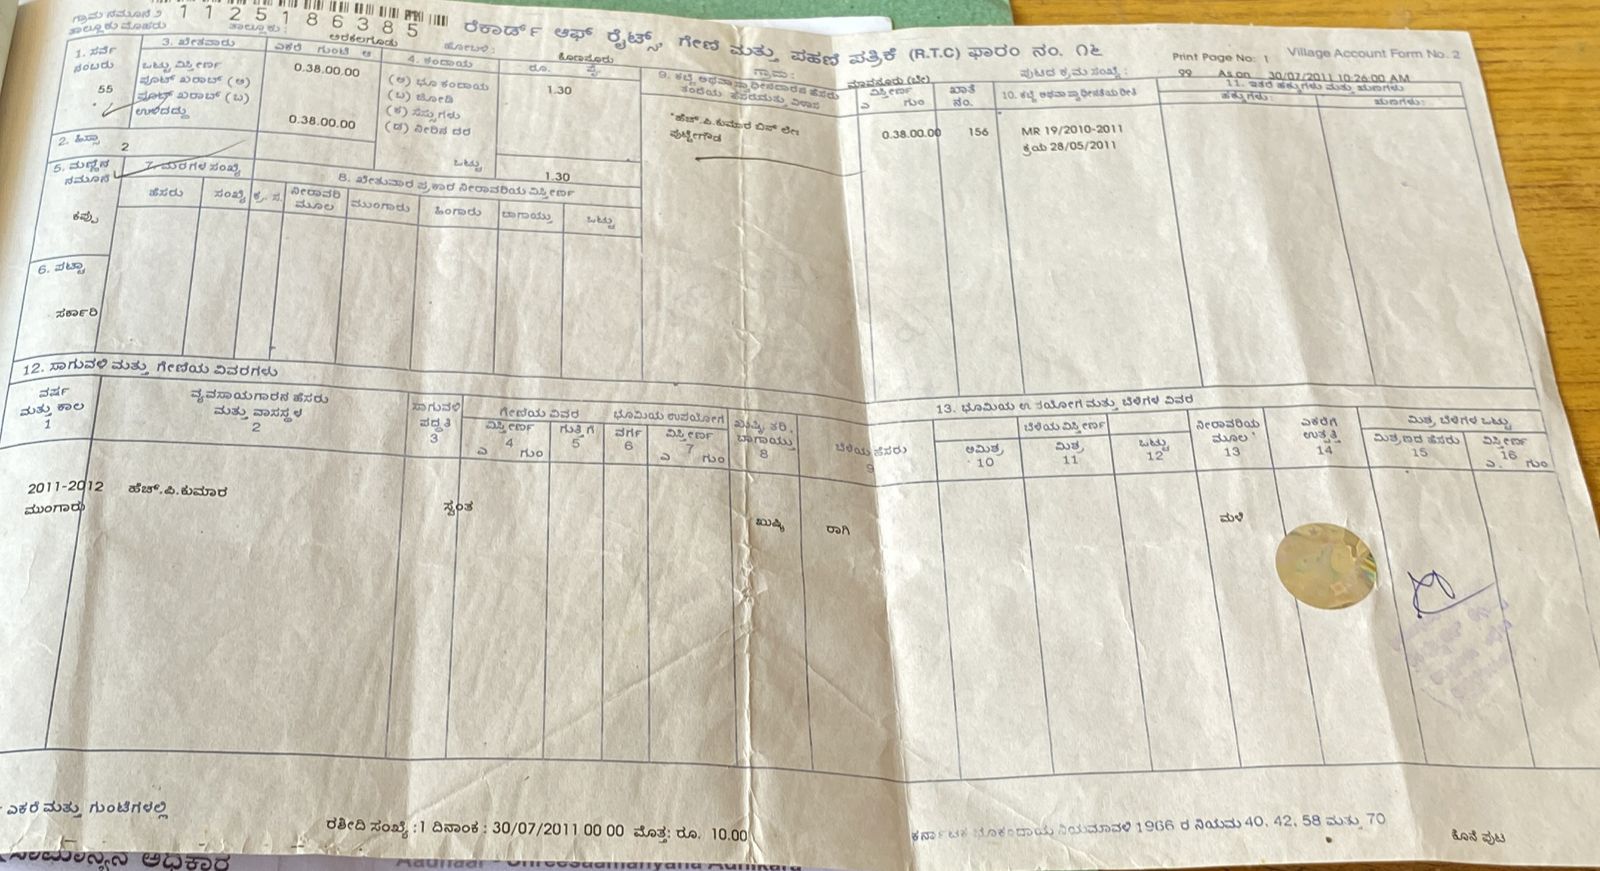 ಗ್ರಾಮ ನಮೂನೆ ೨ 1 1 2 5 1 8 6 3 8 5 ರೆಕಾರ್ಡ್ ಆಫ್ ರೈಟ್ಸ್, ಗೇಣಿ ಮತ್ತು ಪಹಣಿ ಪತ್ರಿಕೆ (R.T.C) ಫಾರಂ ನಂ. ೧೬ Print Page No: 1 Village Account Form No. 2
ತಾಲ್ಲೂಕು: ಅರಕಲಗೂಡು ಹೋಬಳಿ: ಕೊಣನೂರು ಗ್ರಾಮ: ಪುಟದ ಕ್ರಮ ಸಂಖ್ಯೆ: 99 As on 30/07/2011 10:26:00 AM
1. ಸರ್ವೆ ನಂಬರು
55
2. ಹಿಸ್ಸಾ
2
3. ಖೇತವಾರು ಎಕರೆ ಗುಂಟೆ ಆ
ಒಟ್ಟು ವಿಸ್ತೀರ್ಣ 0.38.00.00
ಪೂಟ್ ಖರಾಬ್ (ಅ)
ಪೂಟ್ ಖರಾಬ್ (ಬ)
ಉಳಿದದ್ದು 0.38.00.00
4. ಕಂದಾಯ ರೂ. ಪೈ.
(ಅ) ಭೂ ಕಂದಾಯ 1.30
(ಬ) ಜೋಡಿ
(ಕ) ಸೆಸ್ಸುಗಳು
(ಡ) ನೀರಿನ ದರ
ಒಟ್ಟು 1.30
5. ಮಣ್ಣಿನ ನಮೂನೆ
ಕಪ್ಪು
6. ಪಟ್ಟಾ
ಸರ್ಕಾರಿ
7. ಮರಗಳ ಸಂಖ್ಯೆ
ಹೆಸರು ಸಂಖ್ಯೆ
8. ಖೇತುವಾರ ಪ್ರಕಾರ ನೀರಾವರಿಯ ವಿಸ್ತೀರ್ಣ
ಕ್ರ. ಸ. ನೀರಾವರಿ ಮೂಲ ಮುಂಗಾರು ಹಿಂಗಾರು ಬಾಗಾಯ್ತು ಒಟ್ಟು
9. ಕಬ್ಜೆ ಅಥವಾ ಸ್ವಾಧೀನದಾರನ ಹೆಸರು
ತಂದೆಯ ಹೆಸರು ಮತ್ತು ವಿಳಾಸ
ಹೆಚ್.ಪಿ.ಕುಮಾರ ಬಿನ್ ಲೇ॥
ಪುಟ್ಟೇಗೌಡ
ವಿಸ್ತೀರ್ಣ
ಎ ಗುಂ
0.38.00.00
ಖಾತೆ ನಂ.
156
10. ಕಬ್ಜೆ ಅಥವಾ ಸ್ವಾಧೀನತೆಯ ರೀತಿ
MR 19/2010-2011
ಕ್ರಯ 28/05/2011
11. ಇತರೆ ಹಕ್ಕುಗಳು ಮತ್ತು ಋಣಗಳು
ಹಕ್ಕುಗಳು: ಋಣಗಳು:
12. ಸಾಗುವಳಿ ಮತ್ತು ಗೇಣಿಯ ವಿವರಗಳು
ವರ್ಷ ಮತ್ತು ಕಾಲ 1
ವ್ಯವಸಾಯಗಾರನ ಹೆಸರು ಮತ್ತು ವಾಸಸ್ಥಳ 2
ಸಾಗುವಳಿ ಪದ್ಧತಿ 3
ಗೇಣಿಯ ವಿವರ
ವಿಸ್ತೀರ್ಣ 4 ಎ ಗುಂ
ಗುತ್ತಿಗೆ 5
ಭೂಮಿಯ ಉಪಯೋಗ
ವರ್ಗ 6
ವಿಸ್ತೀರ್ಣ 7 ಎ ಗುಂ
ಖುಷ್ಕಿ ತರಿ, ಬಾಗಾಯ್ತು 8
13. ಭೂಮಿಯ ಉಪಯೋಗ ಮತ್ತು ಬೆಳೆಗಳ ವಿವರ
ಬೆಳೆಯ ಹೆಸರು 9
ಬೆಳೆಯ ವಿಸ್ತೀರ್ಣ
ಅಮಿಶ್ರ 10 ಮಿಶ್ರ 11 ಒಟ್ಟು 12
ನೀರಾವರಿಯ ಮೂಲ 13
ಎಕರೆಗೆ ಉತ್ಪತ್ತಿ 14
ಮಿಶ್ರ ಬೆಳೆಗಳ ಒಟ್ಟು
ಮಿಶ್ರಣದ ಹೆಸರು 15
ವಿಸ್ತೀರ್ಣ 16 ಎ. ಗುಂ
2011-2012 ಹೆಚ್.ಪಿ.ಕುಮಾರ
ಮುಂಗಾರು ಸ್ವಂತ ಖುಷ್ಕಿ ರಾಗಿ ಮಳೆ
ಎಕರೆ ಮತ್ತು ಗುಂಟೆಗಳಲ್ಲಿ
ರಶೀದಿ ಸಂಖ್ಯೆ :1 ದಿನಾಂಕ : 30/07/2011 00 00 ಮೊತ್ತ: ರೂ. 10.00
ಕರ್ನಾಟಕ ಭೂಕಂದಾಯ ನಿಯಮಾವಳಿ 1966 ರ ನಿಯಮ 40, 42, 58 ಮತ್ತು 70
ಕೊನೆ ಪುಟ
ಸಾಮಾನ್ಯನ ಅಧಿಕಾರ